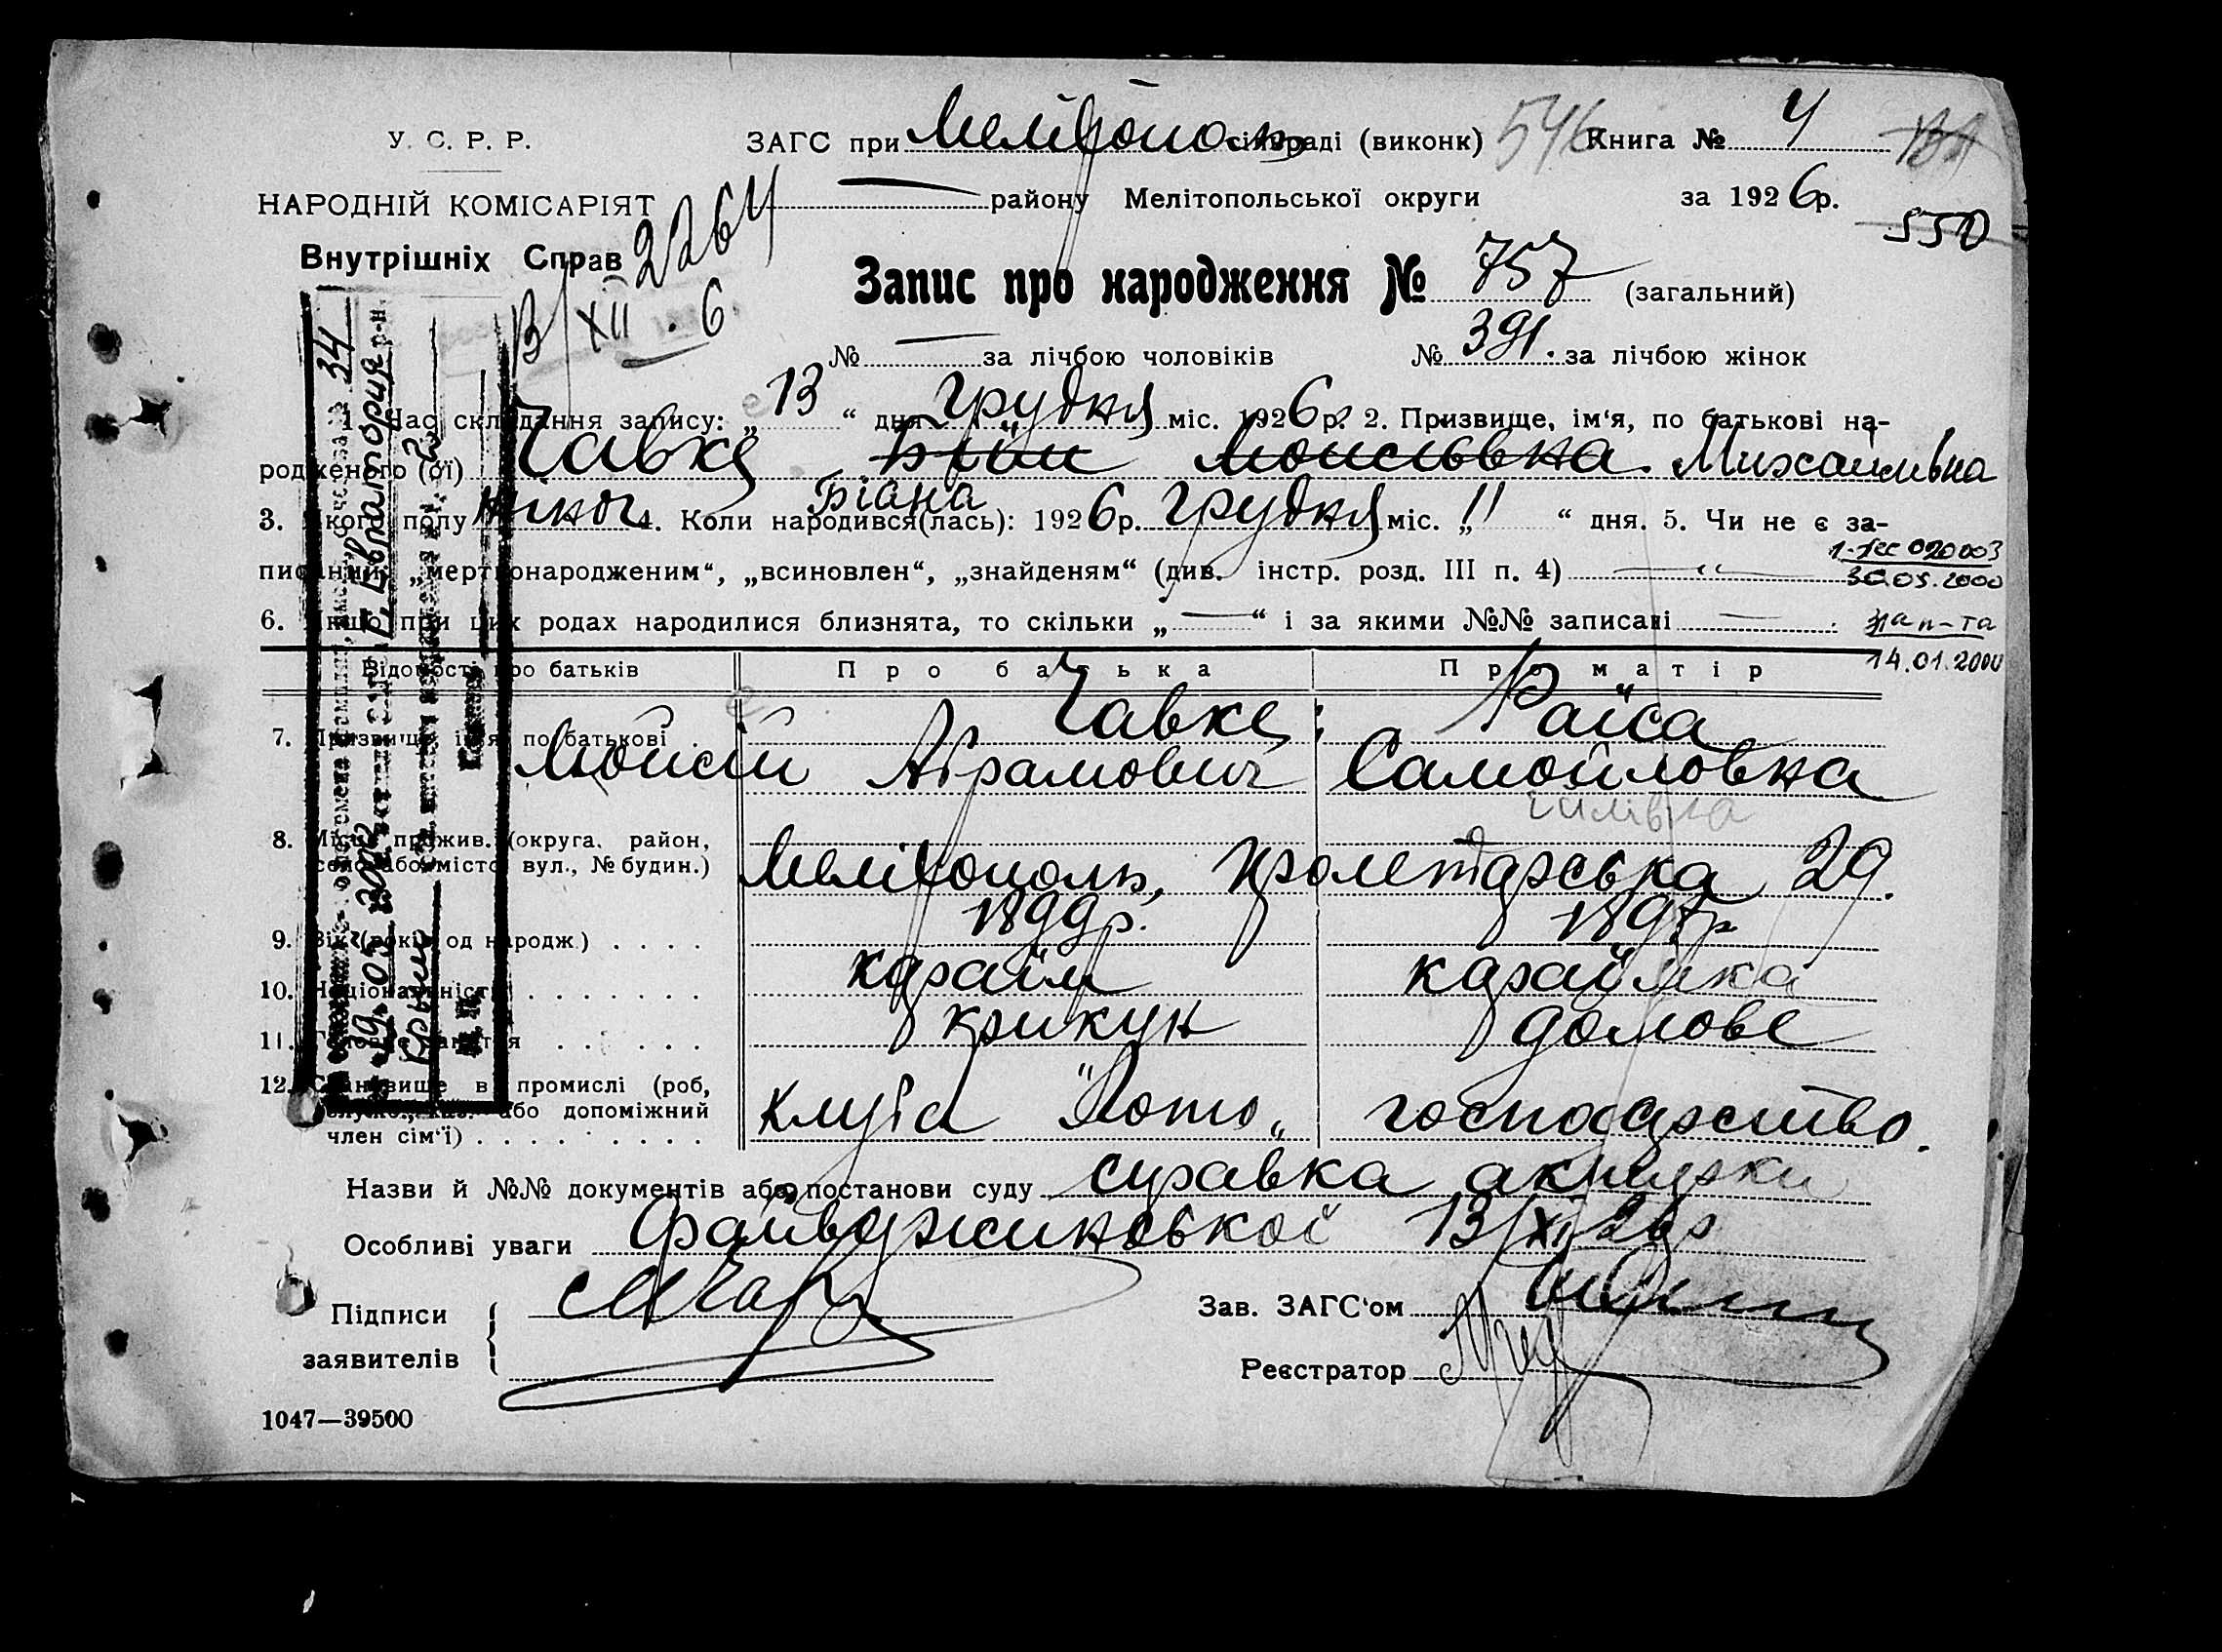 У. С. Р. Р.
ЗАГС при Мелітополь сільраді (виконк) 546 Книга № 4
НАРОДНІЙ КОМІСАРІЯТ
району Мелітопольської округи за 1926р.
550
Внутрішніх Справ 2264
13/XII . 6
Запис про народження № 757 (загальний)
№ — за лічбою чоловіків № 391. за лічбою жінок
1. Час складання запису: „13“ дня грудня міс. 1926р. 2. Призвище, ім‘я, по батькові на-
родженого (ої) Чавке Моисіївна Михайлівна
Біана
3. Якого полу жіноч 4. Коли народився(лась): 1926р. грудня міс. „11“ дня. 5. Чи не є за-
писаний „мертвонародженим“, „всиновлен“, „знайденям“ (див. інстр. розд. III п. 4) — “ —
020003
30.03.2000
6. Якщо при цих родах народилися близнята, то скільки „—“ і за якими №№ записані —
14.01.2000
Відомості про батьків Про батька Про матір
7. Призвище, ім‘я, по батькові Чавке Раїса
Мойсей Абрамович Самойловна
8. Місце прожив. (округа, район,
село або місто, вул., № будин.) Мелітополь, Пролетарська 29.
9. Вік (років од народж.) 1899р. 1897р
10. Національність караїм караїмка
11. Головне заняття крикун домове
12. Становище в промислі (роб,
або допоміжний
член сім‘ї) клуба "Лото„ господарство.
Назви й №№ документів або постанови суду справка акушерки
Особливі уваги 13/XII 26р
Підписи
заявителів
Зав. ЗАГС‘ом
Реєстратор
1047—39500
34
г. Евпатория р-н.
Крым